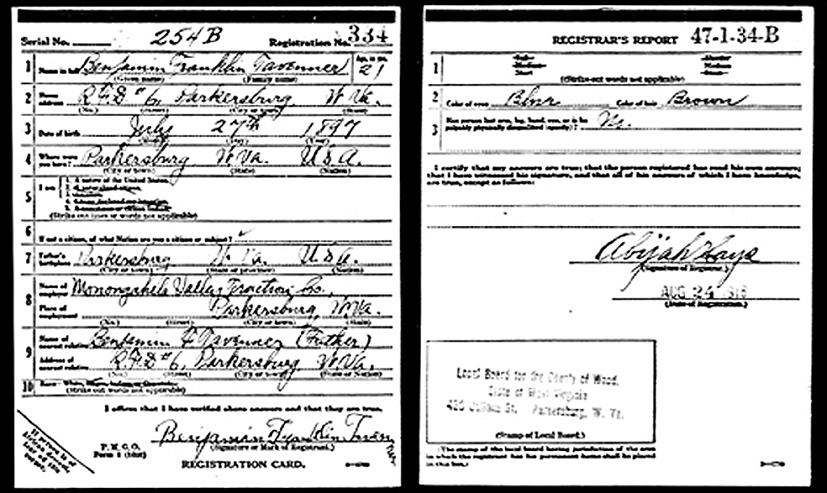 Serial No. 254B Registration No. 334
1 Name in full Benjamin Franklin Tavenner Age, in yrs. 21
(Given name) (Family name)
2 Home address R.F.D #6, Parkersburg W Va.
(No.) (Street) (City or town) (State)
3 Date of birth July 27th 1897
(Month) (Day) (Year)
4 Where were you born? Parkersburg W Va. U S A.
(City or town) (State) (Nation)
5 I am
1. A native of the United States.
(Strike out lines or words not applicable)
6 If not a citizen, of what Nation are you a citizen or subject?
7 Father's birthplace Parkersburg W. Va. U S A.
(City or town) (State or province) (Nation)
8 Name of employer Monongahela Valley Traction Co.,
Place of employment Parkersburg, W Va.
(No.) (Street) (City or town) (State)
9 Name of nearest relative Benjamin F Tavenner (Father)
Address of nearest relative R.F.D #6, Parkersburg W Va.
(No.) (Street) (City or town) (State or Nation)
10 Race—White,
(Strike out words not applicable)
I affirm that I have verified above answers and that they are true.
P. M. G. O.
Form 1 (blue)
Benjamin Franklin Tavenner
(Signature or Mark of Registrant.)
REGISTRATION CARD.
If person is of African descent,
REGISTRAR'S REPORT 47-1-34-B
1
Tall Slender
Medium Medium
Short Stout
(Strike out words not applicable)
2 Color of eyes Blue Color of hair Brown
3 Has person lost arm, leg, hand, eye, or is he palpably physically disqualified (specify)? No.
I certify that my answers are true; that the person registered has read his own answers;
that I have witnessed his signature, and that all of his answers of which I have knowledge,
are true, except as follows:
Abijah Hays
(Signature of Registrar.)
AUG 24 1918
(Date of Registration.)
Local Board for the County of Wood,
State of West Virginia
St. Parkersburg, W. Va.
(Stamp of Local Board.)
(The stamp of the local board having jurisdiction of the area
in which the registrant has his permanent home shall be placed
in this box.)